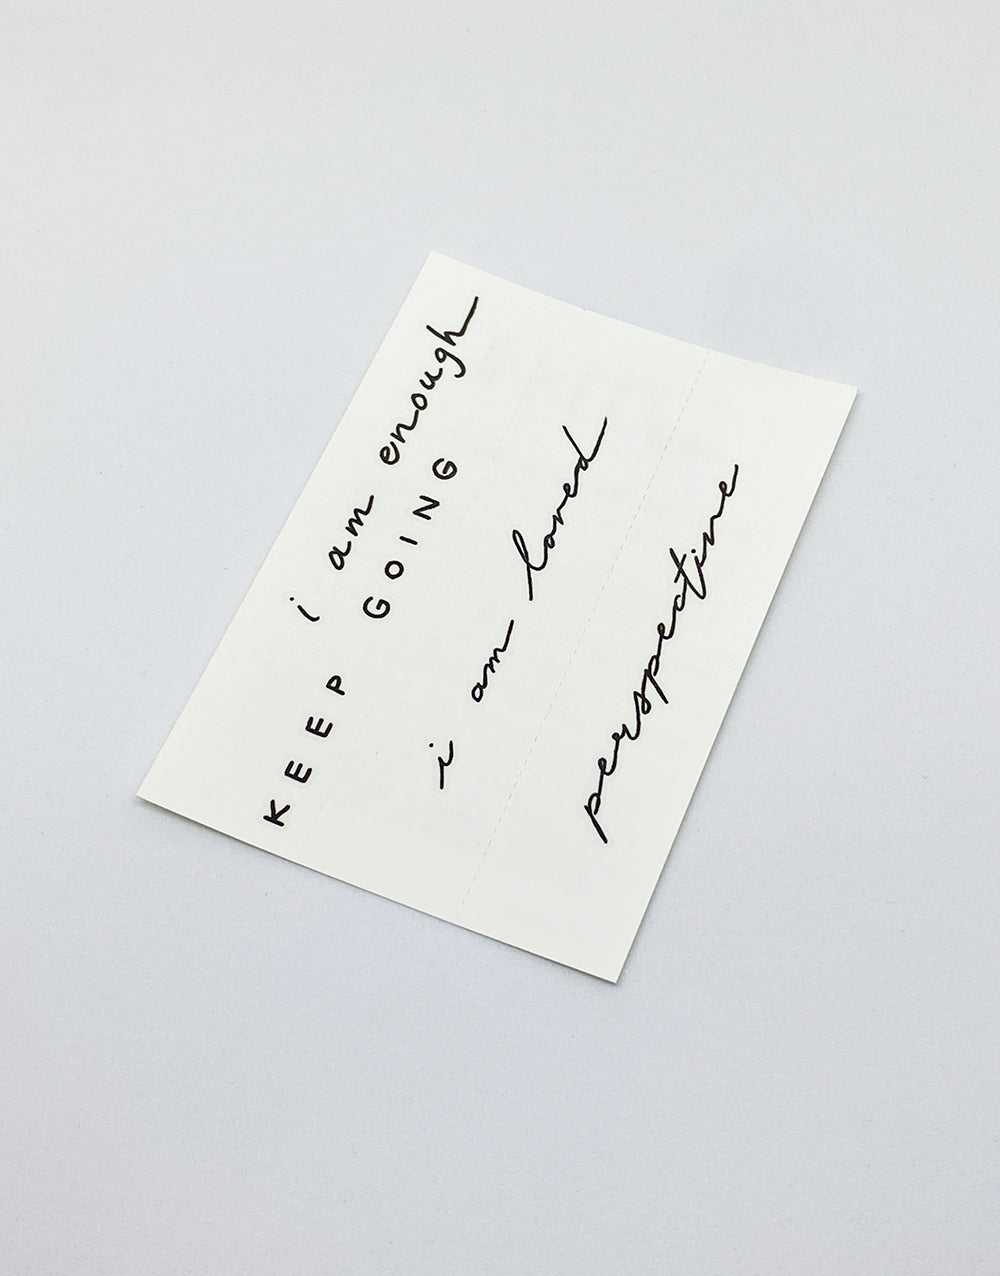 i am enough
KEEP GOING
i am loved
perspective